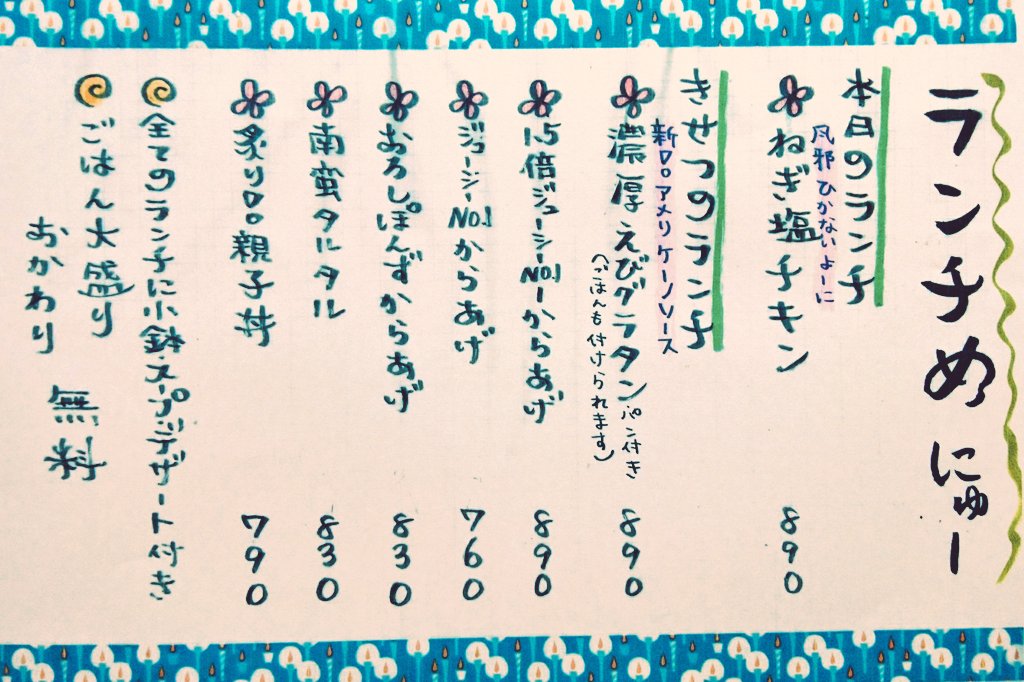 ランチめにゅー
本日のランチ
風邪ひかないよーに
ねぎ塩チキン 890
きせつのランチ
新口。アメリケーノソース
濃厚えびグラタン パン付き 890
(ごはんも付けられます)
1.5倍ジューシーNO.1からあげ 890
ジューシーNO.1からあげ 760
おろしぽんずからあげ 830
南蛮タルタル 830
炙りロロ親子丼 790
全てのランチに小鉢・スープ・デザート付き
ごはん大盛り
おかわり
無料